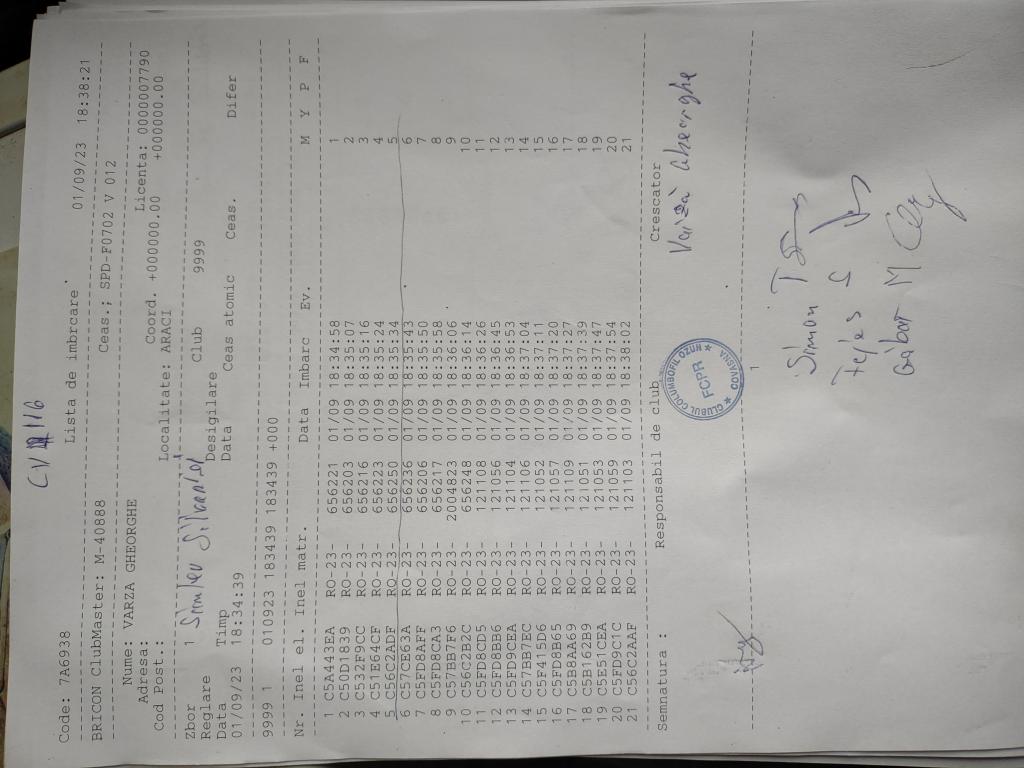 CV 116
Code: 7A6938 Lista de imbrcare 01/09/23 18:38:21
BRICON ClubMaster: M-40888 Ceas.; SPD-F0702 V 012
Nume: VARZA GHEORGHE Licenta: 0000007790
Adresa: Coord. +000000.00 +000000.00
Cod Post.: Localitate: ARACI
Zbor 1 Simleu Silvaniei Club 9999
Reglare Desigilare
Data Timp Data Ceas atomic Ceas. Difer
01/09/23 18:34:39
9999 1 010923 183439 183439 +000
Nr. Inel el. Inel matr. Data Imbarc Ev. M Y P F
1 C5A443EA RO-23- 656221 01/09 18:34:58 1
2 C50D1839 RO-23- 656203 01/09 18:35:07 2
3 C532F9CC RO-23- 656216 01/09 18:35:16 3
4 C51E64CF RO-23- 656223 01/09 18:35:24 4
5 C56C2ADF RO-23- 656250 01/09 18:35:34 5
6 C57CE63A RO-23- 656236 01/09 18:35:43 6
7 C5FD8AFF RO-23- 656206 01/09 18:35:50 7
8 C5FD8CA3 RO-23- 656217 01/09 18:35:58 8
9 C57BB7F6 RO-23- 2004823 01/09 18:36:06 9
10 C56C2B2C RO-23- 656248 01/09 18:36:14 10
11 C5FD8CD5 RO-23- 121108 01/09 18:36:26 11
12 C5FD8BB6 RO-23- 121056 01/09 18:36:45 12
13 C5FD9CEA RO-23- 121104 01/09 18:36:53 13
14 C57BB7EC RO-23- 121106 01/09 18:37:04 14
15 C5F415D6 RO-23- 121052 01/09 18:37:11 15
16 C5FD8B65 RO-23- 121057 01/09 18:37:20 16
17 C5B8AA69 RO-23- 121109 01/09 18:37:27 17
18 C5B162B9 RO-23- 121051 01/09 18:37:39 18
19 C5E51CEA RO-23- 121053 01/09 18:37:47 19
20 C5FD9C1C RO-23- 121059 01/09 18:37:54 20
21 C56C2AAF RO-23- 121103 01/09 18:38:02 21
Semnatura : Responsabil de club Crescator
Varza Gheorghe
CLUBUL COLUMBOFIL OZUN
FCPR
COVASNA
1
Simon T
Fejes S
Gábor M